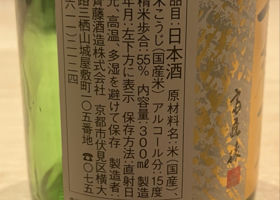 品目：日本酒 原材料名：米（国産）、
米こうじ（国産米）アルコール分：15度
精米歩合：55％ 内容量：300ml 製造
年月：左下方に表示 保存方法：直射日
光、高温、多湿を避けて保存 製造者：
齊藤酒造株式会社 京都市伏見区横大
路三栖山城屋敷町一〇五番地 ☎〇七五
六一一‐二一二四